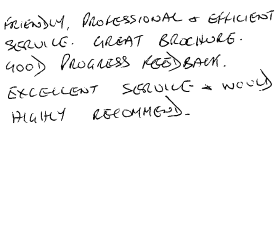 FRIENDLY, PROFESSIONAL & EFFICIENT
SERVICE. GREAT BROCHURE.
GOOD PROGRESS FEEDBACK.
EXCELLENT SERVICE & WOULD
HIGHLY RECOMMEND.